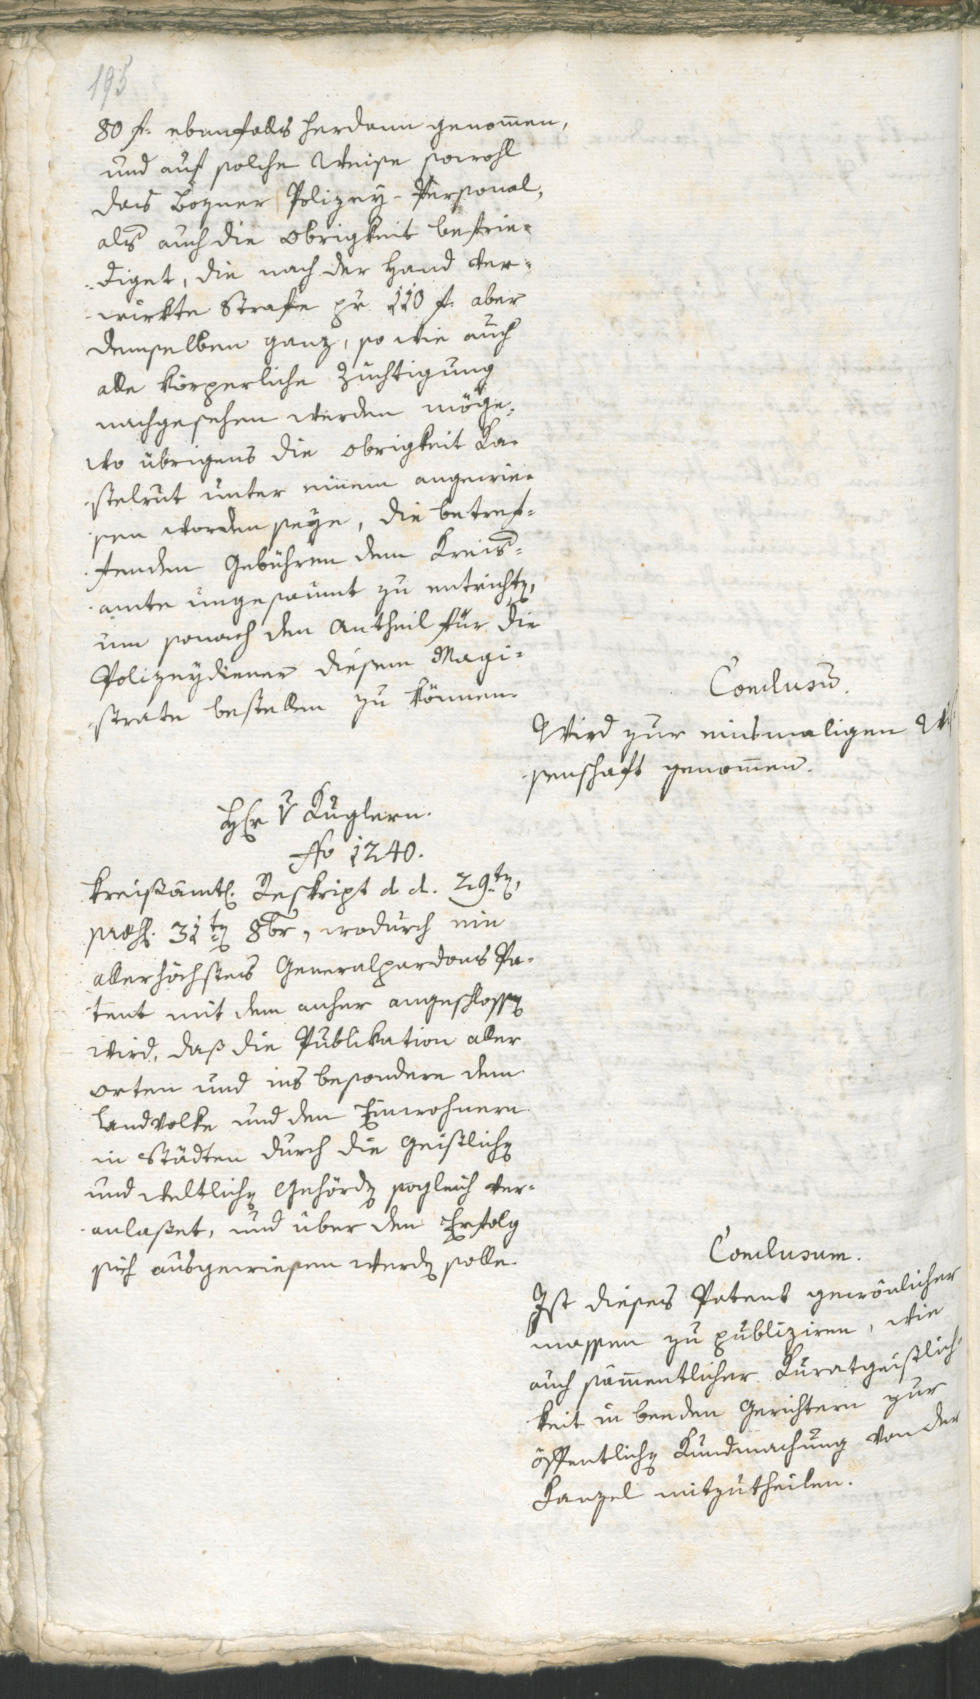 195
80 f. ebenfalls herdann genom̅en,
und auf solche Weise sowohl
das Bozner Polizey-Personal,
als auch die Obrigkeit befrie-
diget, die nach der Hand ver-
wirkte Strafe pr 110 f. aber
demselben ganz, so wie auch
alle körperliche Züchtigung
nachgesehen werden möge,
wo übrigens die Obrigkeit Ka-
stelrut unter einem angewie-
sen worden seye, die betref-
fenden Gebühren dem Kreis-
amte ungesaumt zu entrichtẽ,
um sonach den Antheil für die
Polizeydiener diesem Magi-
strate bestellen zu können.
Conclusu̅.
Wird zur einsmaligen Wis
senschaft genom̅en.
Hr v Kuglern.
No 1240.
Kreisämtl. Reskript d. d. 29tẽ,
præs. 31tẽ 8br, wodurch ein
allerhöchstes Generalpardons Pa-
tent mit dem anher angeschlossẽ
wird, daß die Publikation aller
Orten und ins besondere dem
Landvolke und den Einwohnern
in Städten durch die Geistlichẽ
und weltlichẽ Behördẽ sogleich ver-
anlaßet, und über den Erfolg
sich ausgewiesen werdẽ solle.
Conclusum.
Ist dieses Patent gewönlicher
massen zu publiziren, wie
auch säm̅entlicher Kuratgeistlich-
keit in beeden Gerichtern zur
öffentlichẽ Kundmachung von der
Kanzel mitzutheilen.